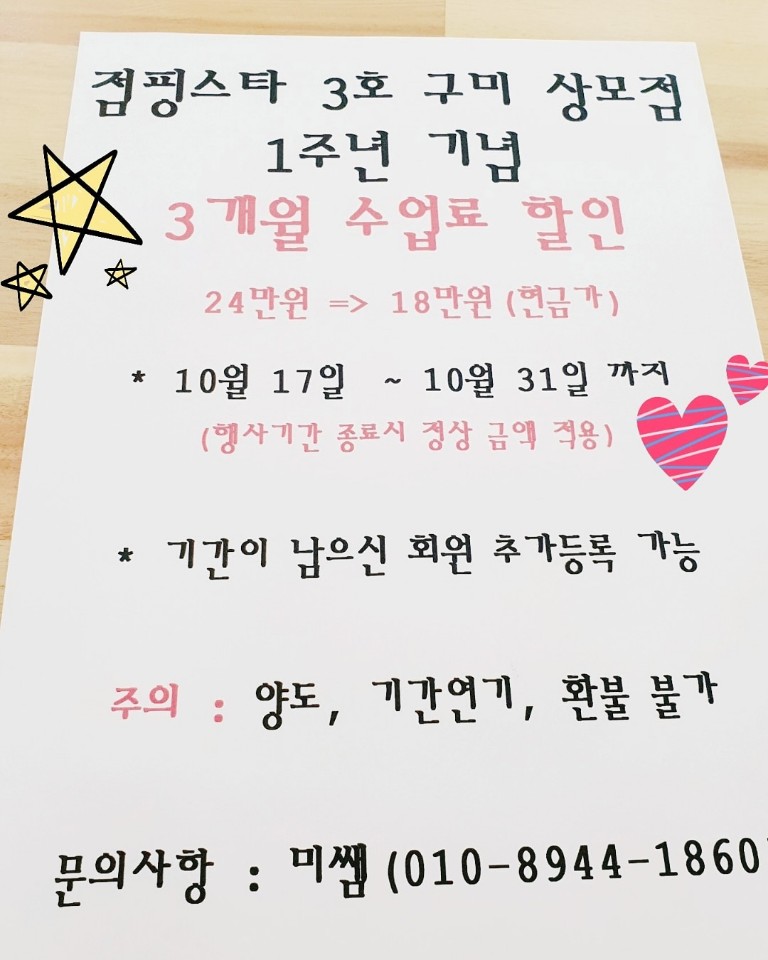 점핑스타 3호 구미 상모점
1주년 기념
3개월 수업료 할인
24만원 => 18만원 (현금가)
* 10월 17일 ~ 10월 31일 까지
(행사기간 종료시 정상 금액 적용)
* 기간이 남으신 회원 추가등록 가능
주의 : 양도, 기간연기, 환불 불가
문의사항 : 미쌤 (010-8944-1860)